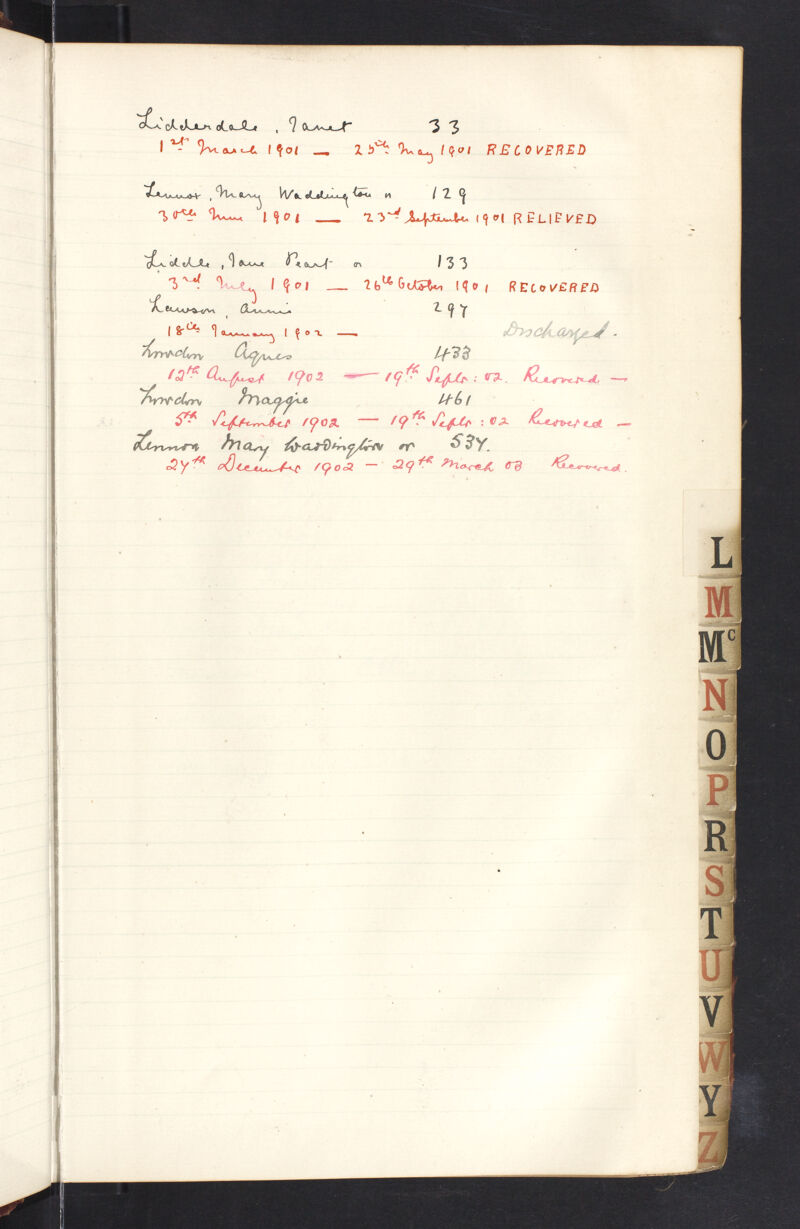 Lidderdale, Janet 33
1st March 1901 — 25th May 1901 RECOVERED
Lennox, Mary Waddington or 129
30th June 1901 — 23rd September 1901 RELIEVED
Liddle, Jane Peart or 133
3rd July 1901 — 26th October 1901 RECOVERED
Lawson, Annie 297
18th January 1902 — Discharged.
Lowdon Agnes 433
12th August 1902 — 19th Septr: 02. Recovered —
Lowdon Maggie 461
5th September 1902 — 19th Septr: 02 Recovered —
Lennox Mary Waddington or 537.
27th December 1902 — 29th March 03 Recovered.
L
M
Mc
N
O
P
R
S
T
U
V
W
Y
Z